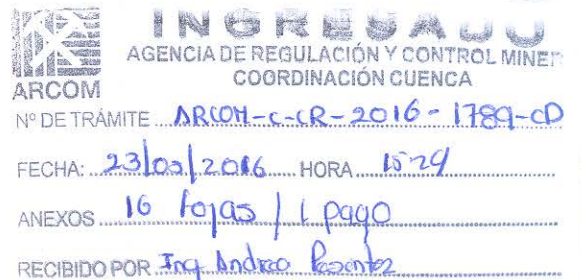 INGRESADO
AGENCIA DE REGULACIÓN Y CONTROL MINER
COORDINACIÓN CUENCA
ARCOM
Nº DE TRÁMITE ARCOM-C-CR-2016-1789-CD
FECHA: 23/03/2016 HORA 15:29
ANEXOS 16 fojas / 1 pago
RECIBIDO POR Ing. Andrea